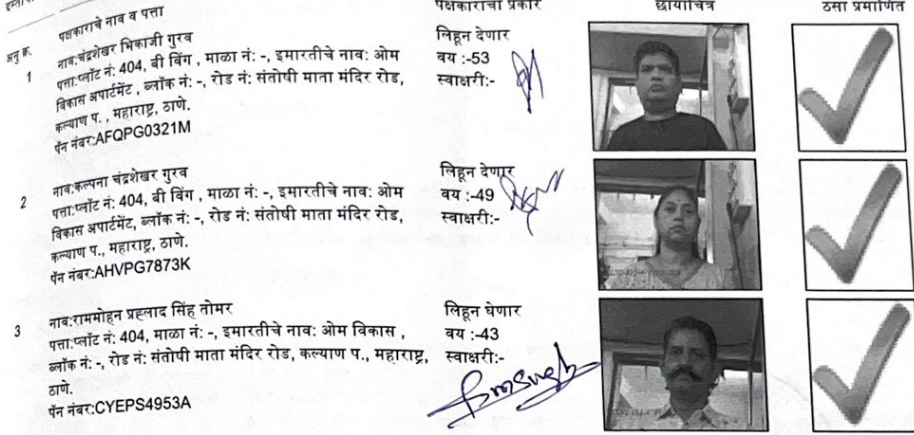 अनु क्र. पक्षकाराचे नाव व पत्ता पक्षकाराचा प्रकार छायाचित्र ठसा प्रमाणित
1 नाव:चंद्रशेखर भिकाजी गुरव
पत्ता:प्लॉट नं: 404, बी विंग , माळा नं: -, इमारतीचे नाव: ओम
विकास अपार्टमेंट , ब्लॉक नं: -, रोड नं: संतोषी माता मंदिर रोड,
कल्याण प. , महाराष्ट्र, ठाणे.
पॅन नंबर:AFQPG0321M
लिहून देणार
वय :-53
स्वाक्षरी:-
2 नाव:कल्पना चंद्रशेखर गुरव
पत्ता:प्लॉट नं: 404, बी विंग , माळा नं: -, इमारतीचे नाव: ओम
विकास अपार्टमेंट, ब्लॉक नं: -, रोड नं: संतोषी माता मंदिर रोड,
कल्याण प., महाराष्ट्र, ठाणे.
पॅन नंबर:AHVPG7873K
लिहून देणार
वय :-49
स्वाक्षरी:-
3 नाव:राममोहन प्रह्लाद सिंह तोमर
पत्ता:प्लॉट नं: 404, माळा नं: -, इमारतीचे नाव: ओम विकास ,
ब्लॉक नं: -, रोड नं: संतोषी माता मंदिर रोड, कल्याण प., महाराष्ट्र,
ठाणे.
पॅन नंबर:CYEPS4953A
लिहून घेणार
वय :-43
स्वाक्षरी:-